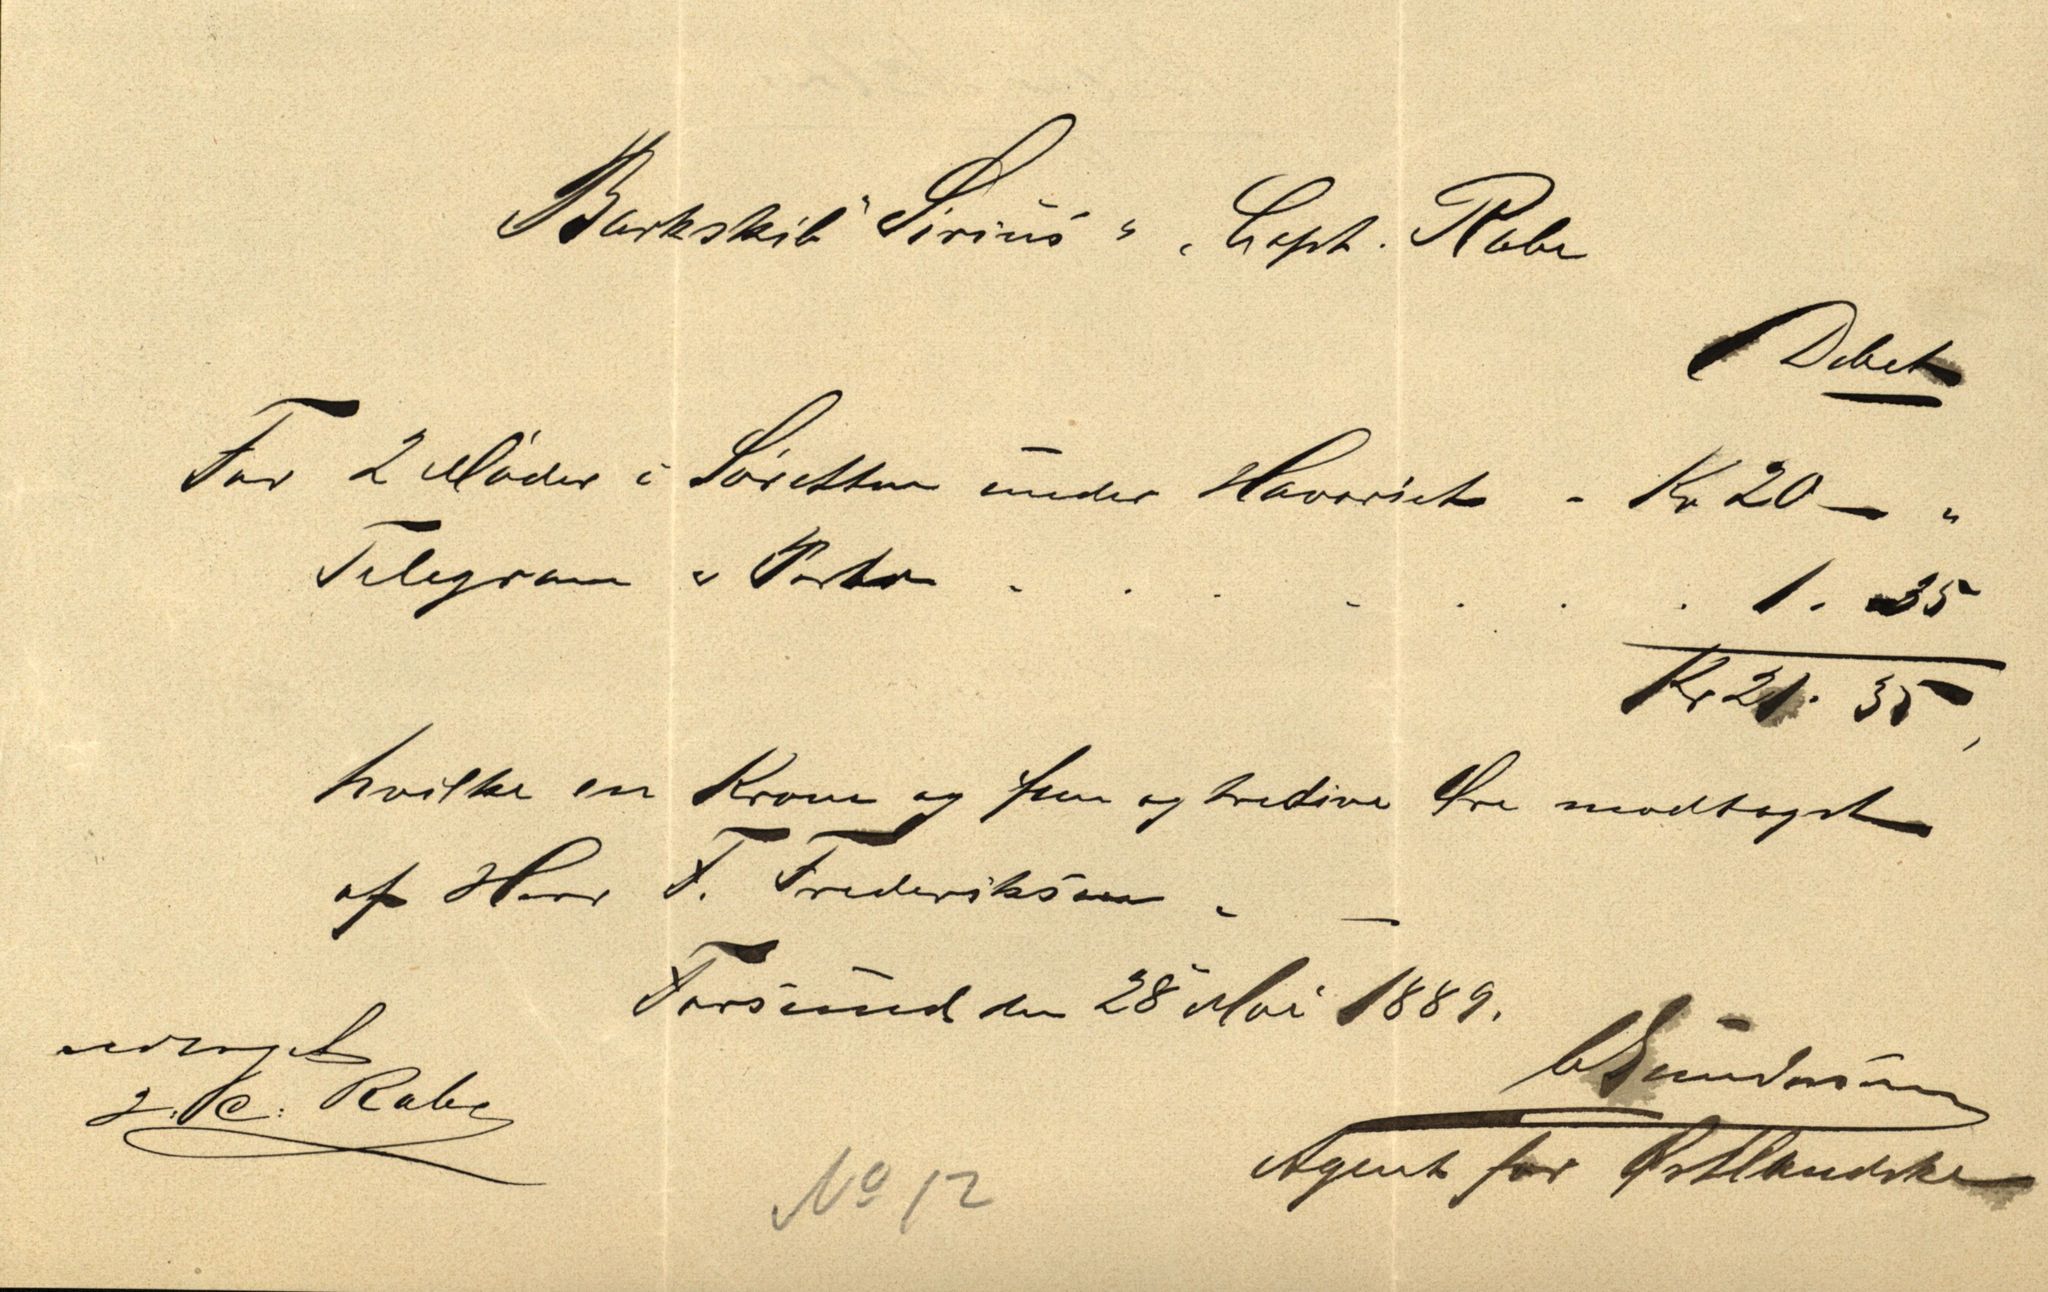 Barkskib "Sirius", Capt. Rabe
Debet
For 2 Møder i Søretten under Havariet - Kr 20 — "
Telegram & Porto . . . . . . . 1. 35
Kr 21. 35,
hvilke en Krone og fem og tredive Øre modtaget
af Herr F. Frederiksen. —
Farsund den 28 Mai 1889.
C Gundersen
Agent for Østlandske
Rabe
No 12